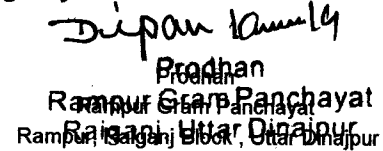 Dipan
Prodhan
Prodhan
Rampur Gram Panchayat
Rampur Gram Panchayat
Raiganj, Uttar Dinajpur
Rampur, Raiganj Block, Uttar Dinajpur